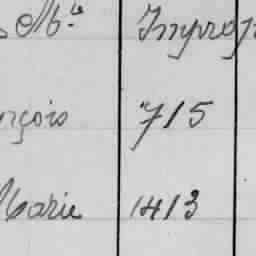 Mle Improp
nçois 715
Marie 1413